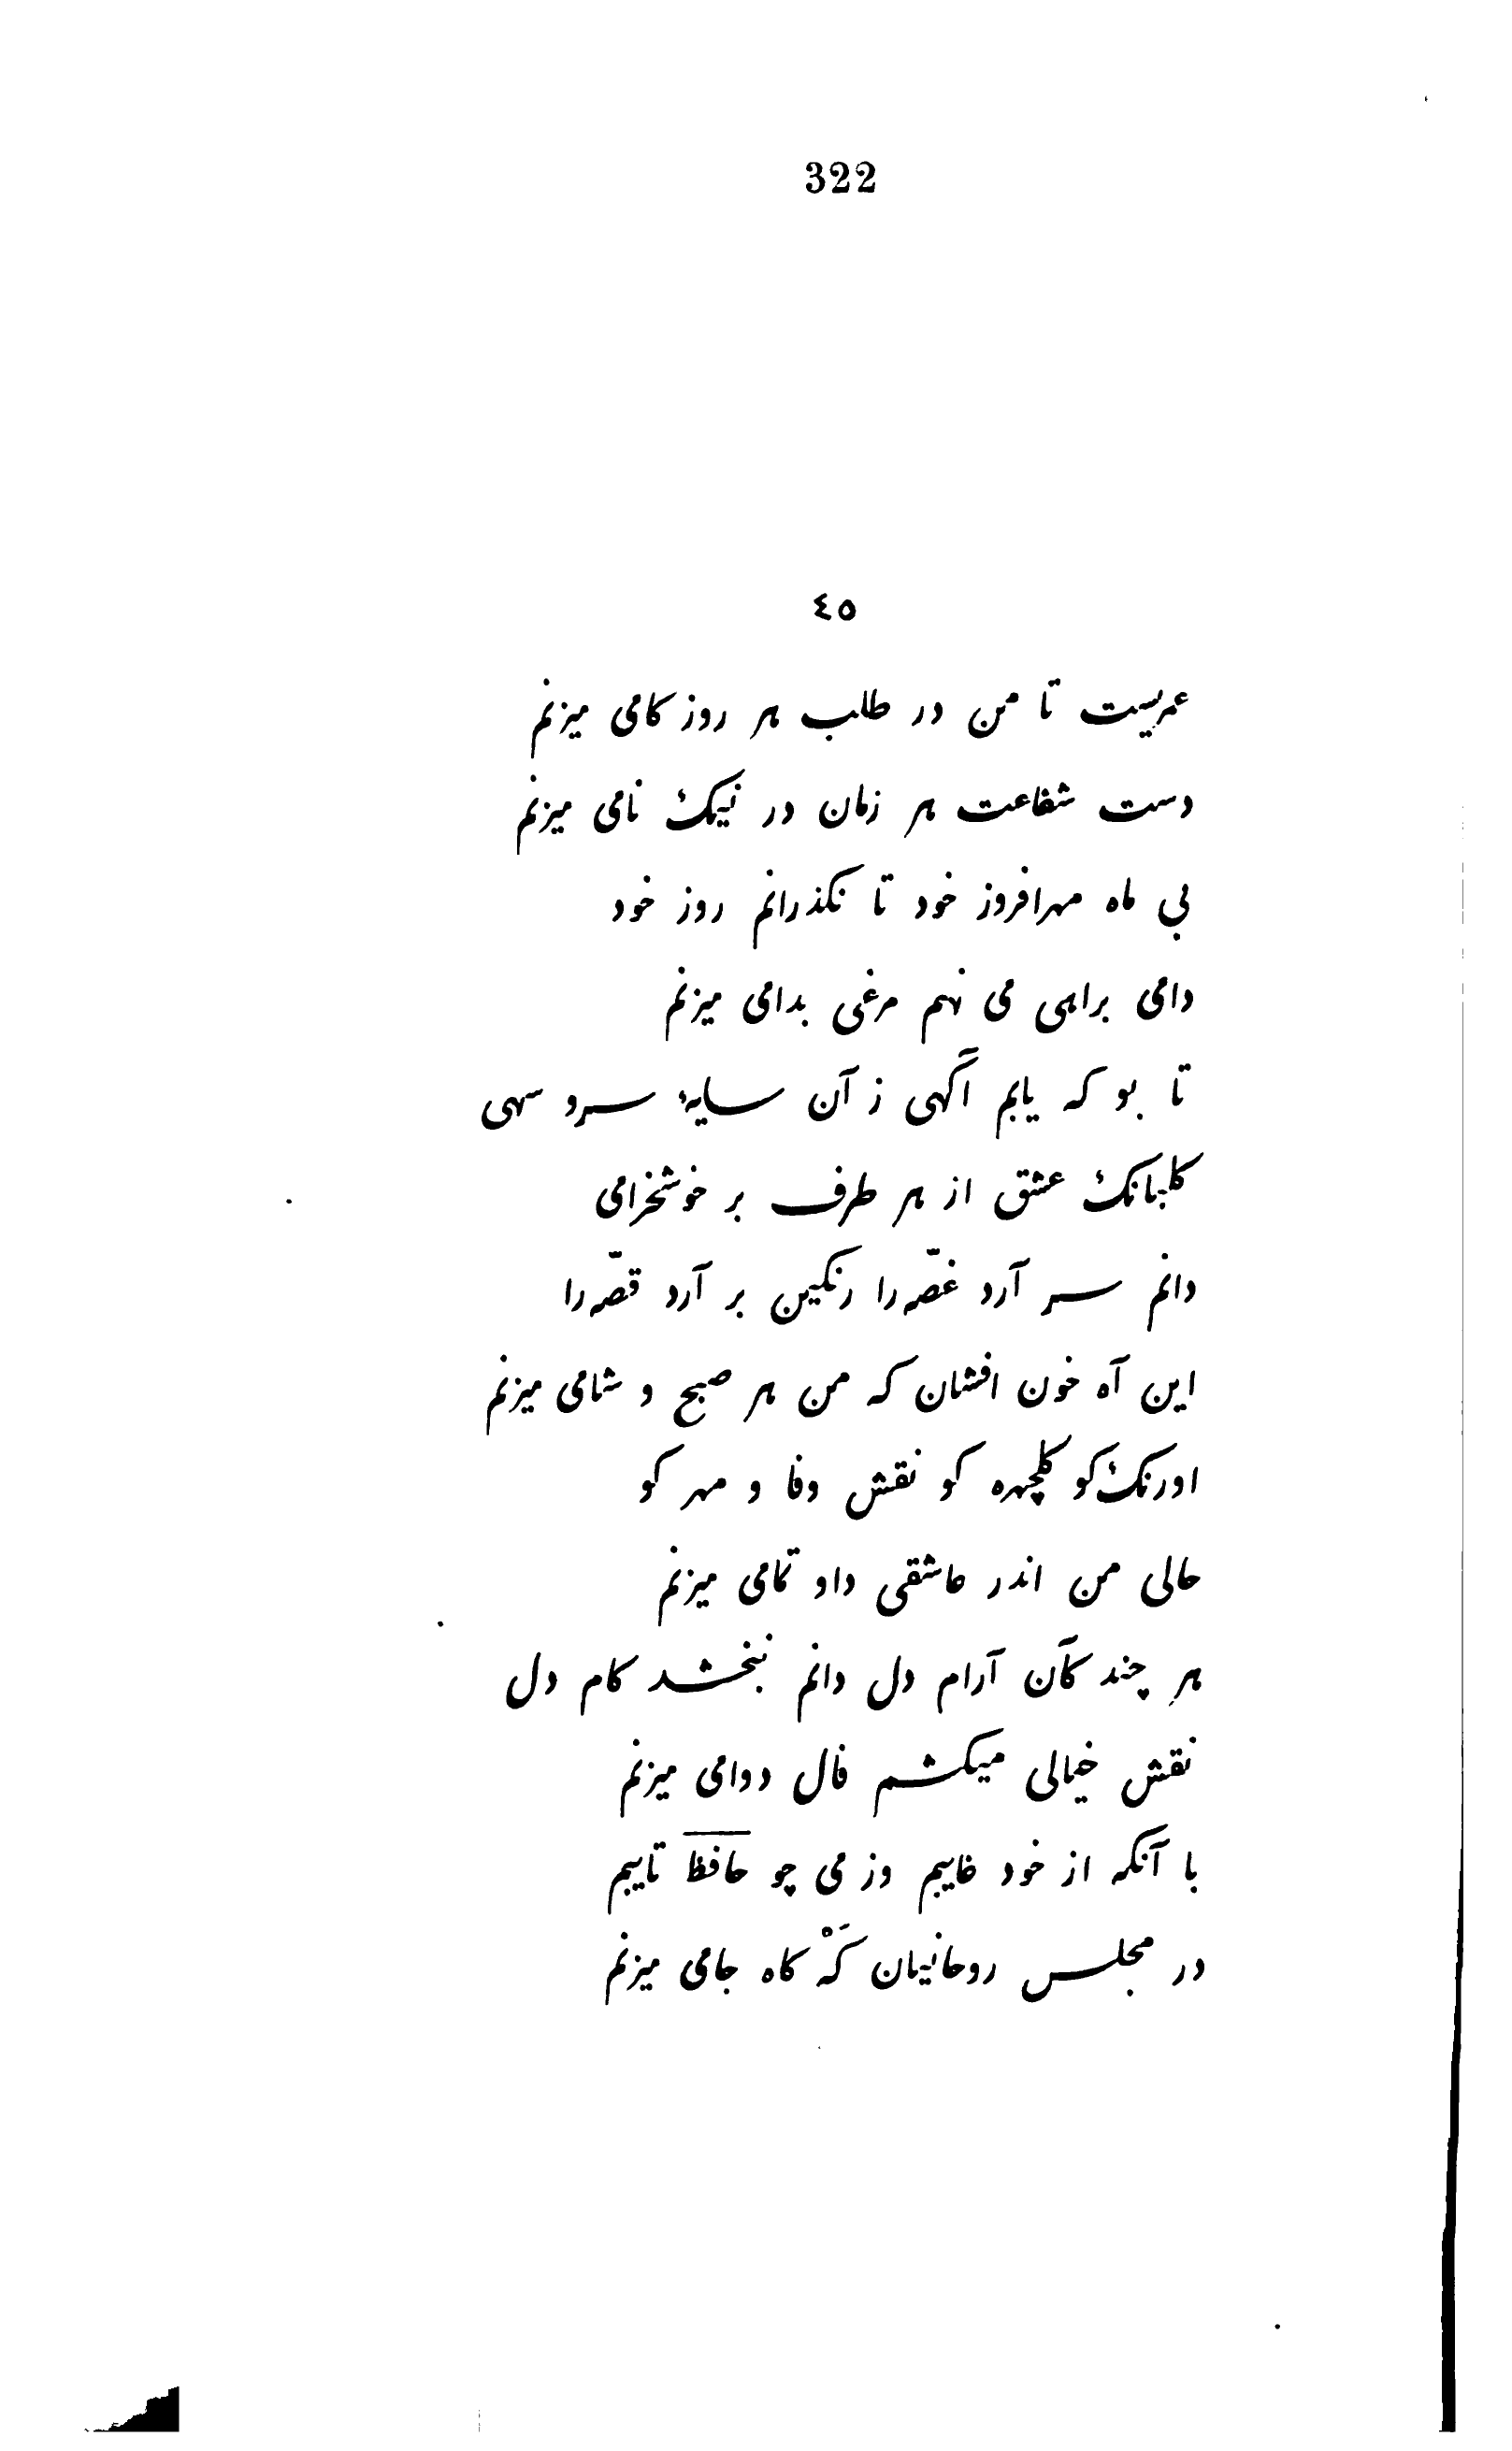 322
٤٥
عمریست تا من در طلب هر روز کامی میزنم
دست شفاعت هر زمان در نیکنامی میزنم
بی ماه مهرافروز خود تا نکذرانم روز خود
دامی براهی می نهم مرغی بدامی میزنم
تا بو که یابم آگهی ز آن سایهٔ سرو سهی
کلبانک عشق از هر طرف بر خوشخرامی
دانم سر آرد غصّه را رنکین بر آرد قصّه را
این آه خون افشان که من هر صبح و شامی میزنم
اورنک کو کلچهره کو نقش وفا و مهر کو
حالی من اندر عاشقی داو تمامی میزنم
هر چند کآن آرام دل دانم نبخشد کام دل
نقش خیالی میکشم فال دوامی میزنم
با آنکه از خود غایبم وز می چو حافظ تایبم
در مجلس روحانیان کَهْ کاه جامی میزنم